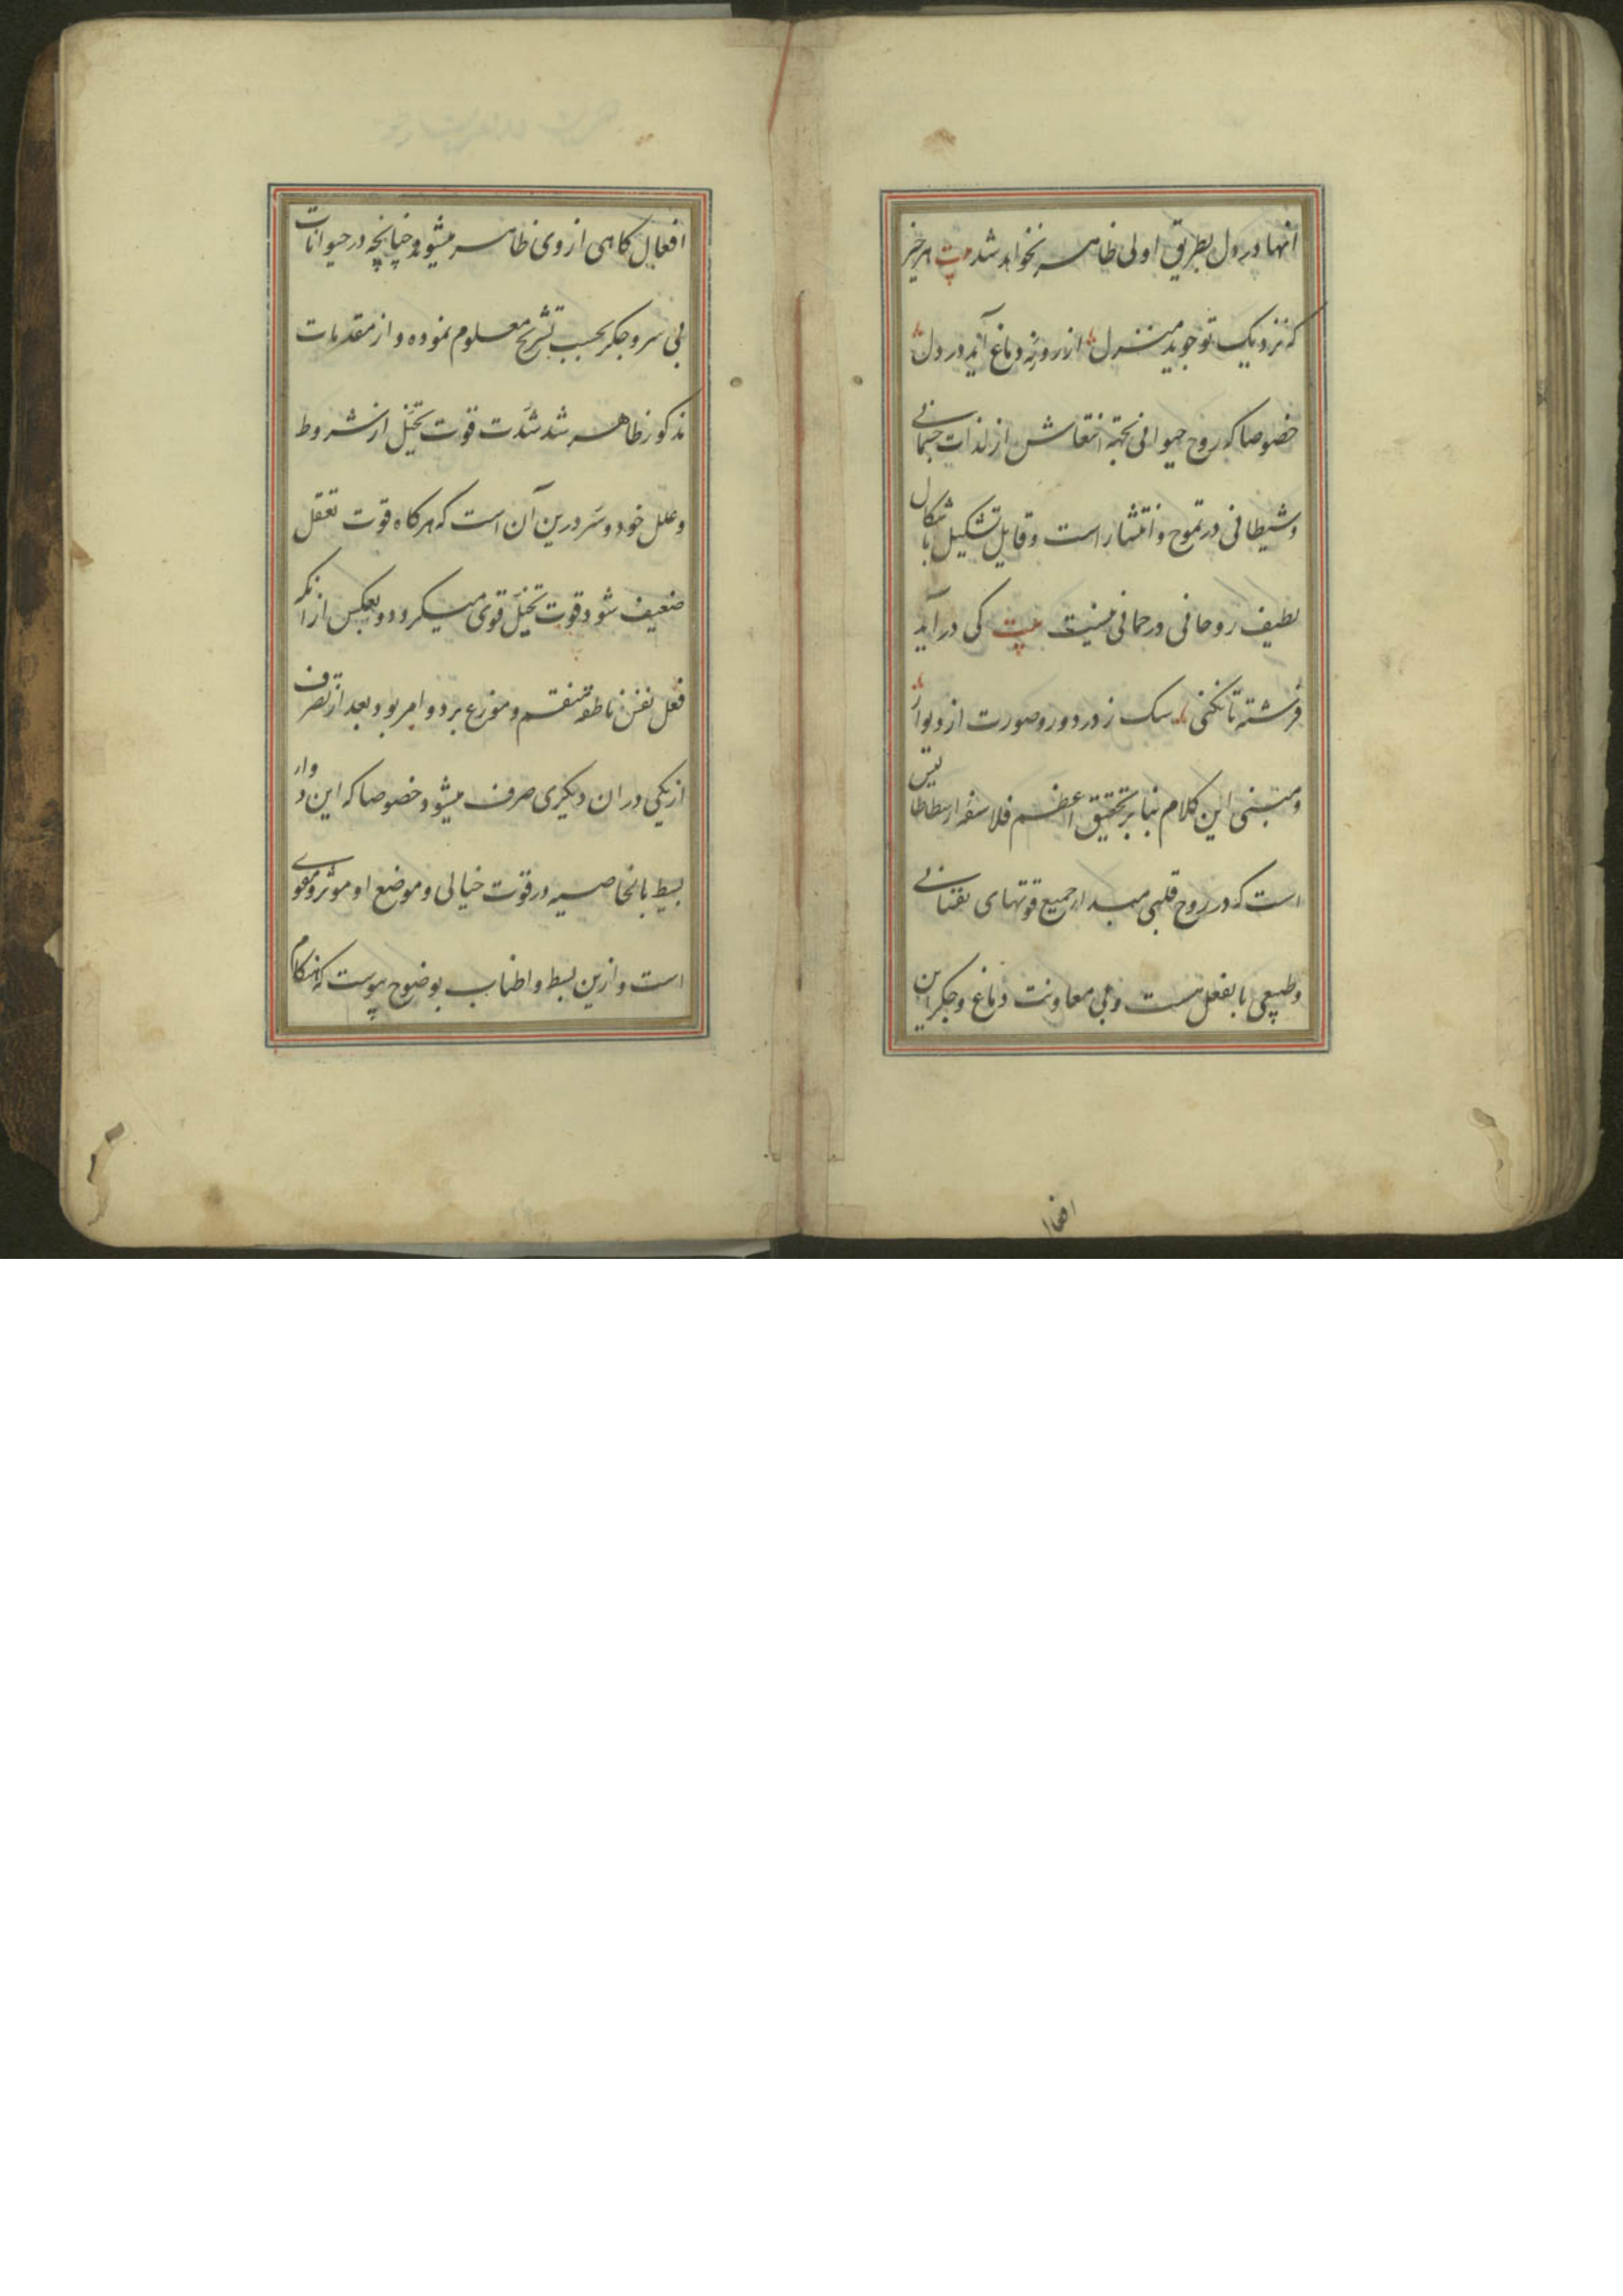 انها در دل بطریق اولی ظاهر نخواهد شد بیت هر چیز
که نزدیک تو جوید منزل از روزنه دماغ آید در دل
خصوصا که روح حیوانی بجهة انتعاش از لذات جسمانی
و شیطانی در تموج و انتشار است و قابل تشکیل باشکال
لطیف روحانی و رحمانی نیست بیت کی درآید
فرشته تا نکنی سک ز در دور و صورت از دیوار
و مبنی این کلام بنا بر تحقیق اعظم فلاسفه ارسطاطالیس
است که در روح قلبی مبدا جمیع قوتهای نفسانی
و طبیعی بالفعل هست و بی معاونت دماغ و جکر این
افعا
افعال کاهی از وی ظاهر میشود چنانچه در حیوانات
بی سر و جکر بحسب تشریح معلوم نموده و از مقدمات
مذکور ظاهر شد شدت قوت تخیل از شروط
و علل خود و سر درین آن است که هر کاه قوت تعقل
ضعیف شود قوت تخیل قوی میکردد و بعکس از انکه
فعل نفس ناطقه منقسم و موزع بر دو امر بود بعد از تصرف
از یکی در ان دیکری صرف میشود خصوصا که این دوار
بسیط بالخاصیه در قوت خیالی و موضع او موثر و مقوی
است و ازین بسط و اطناب بوضوح پیوست که هنکام